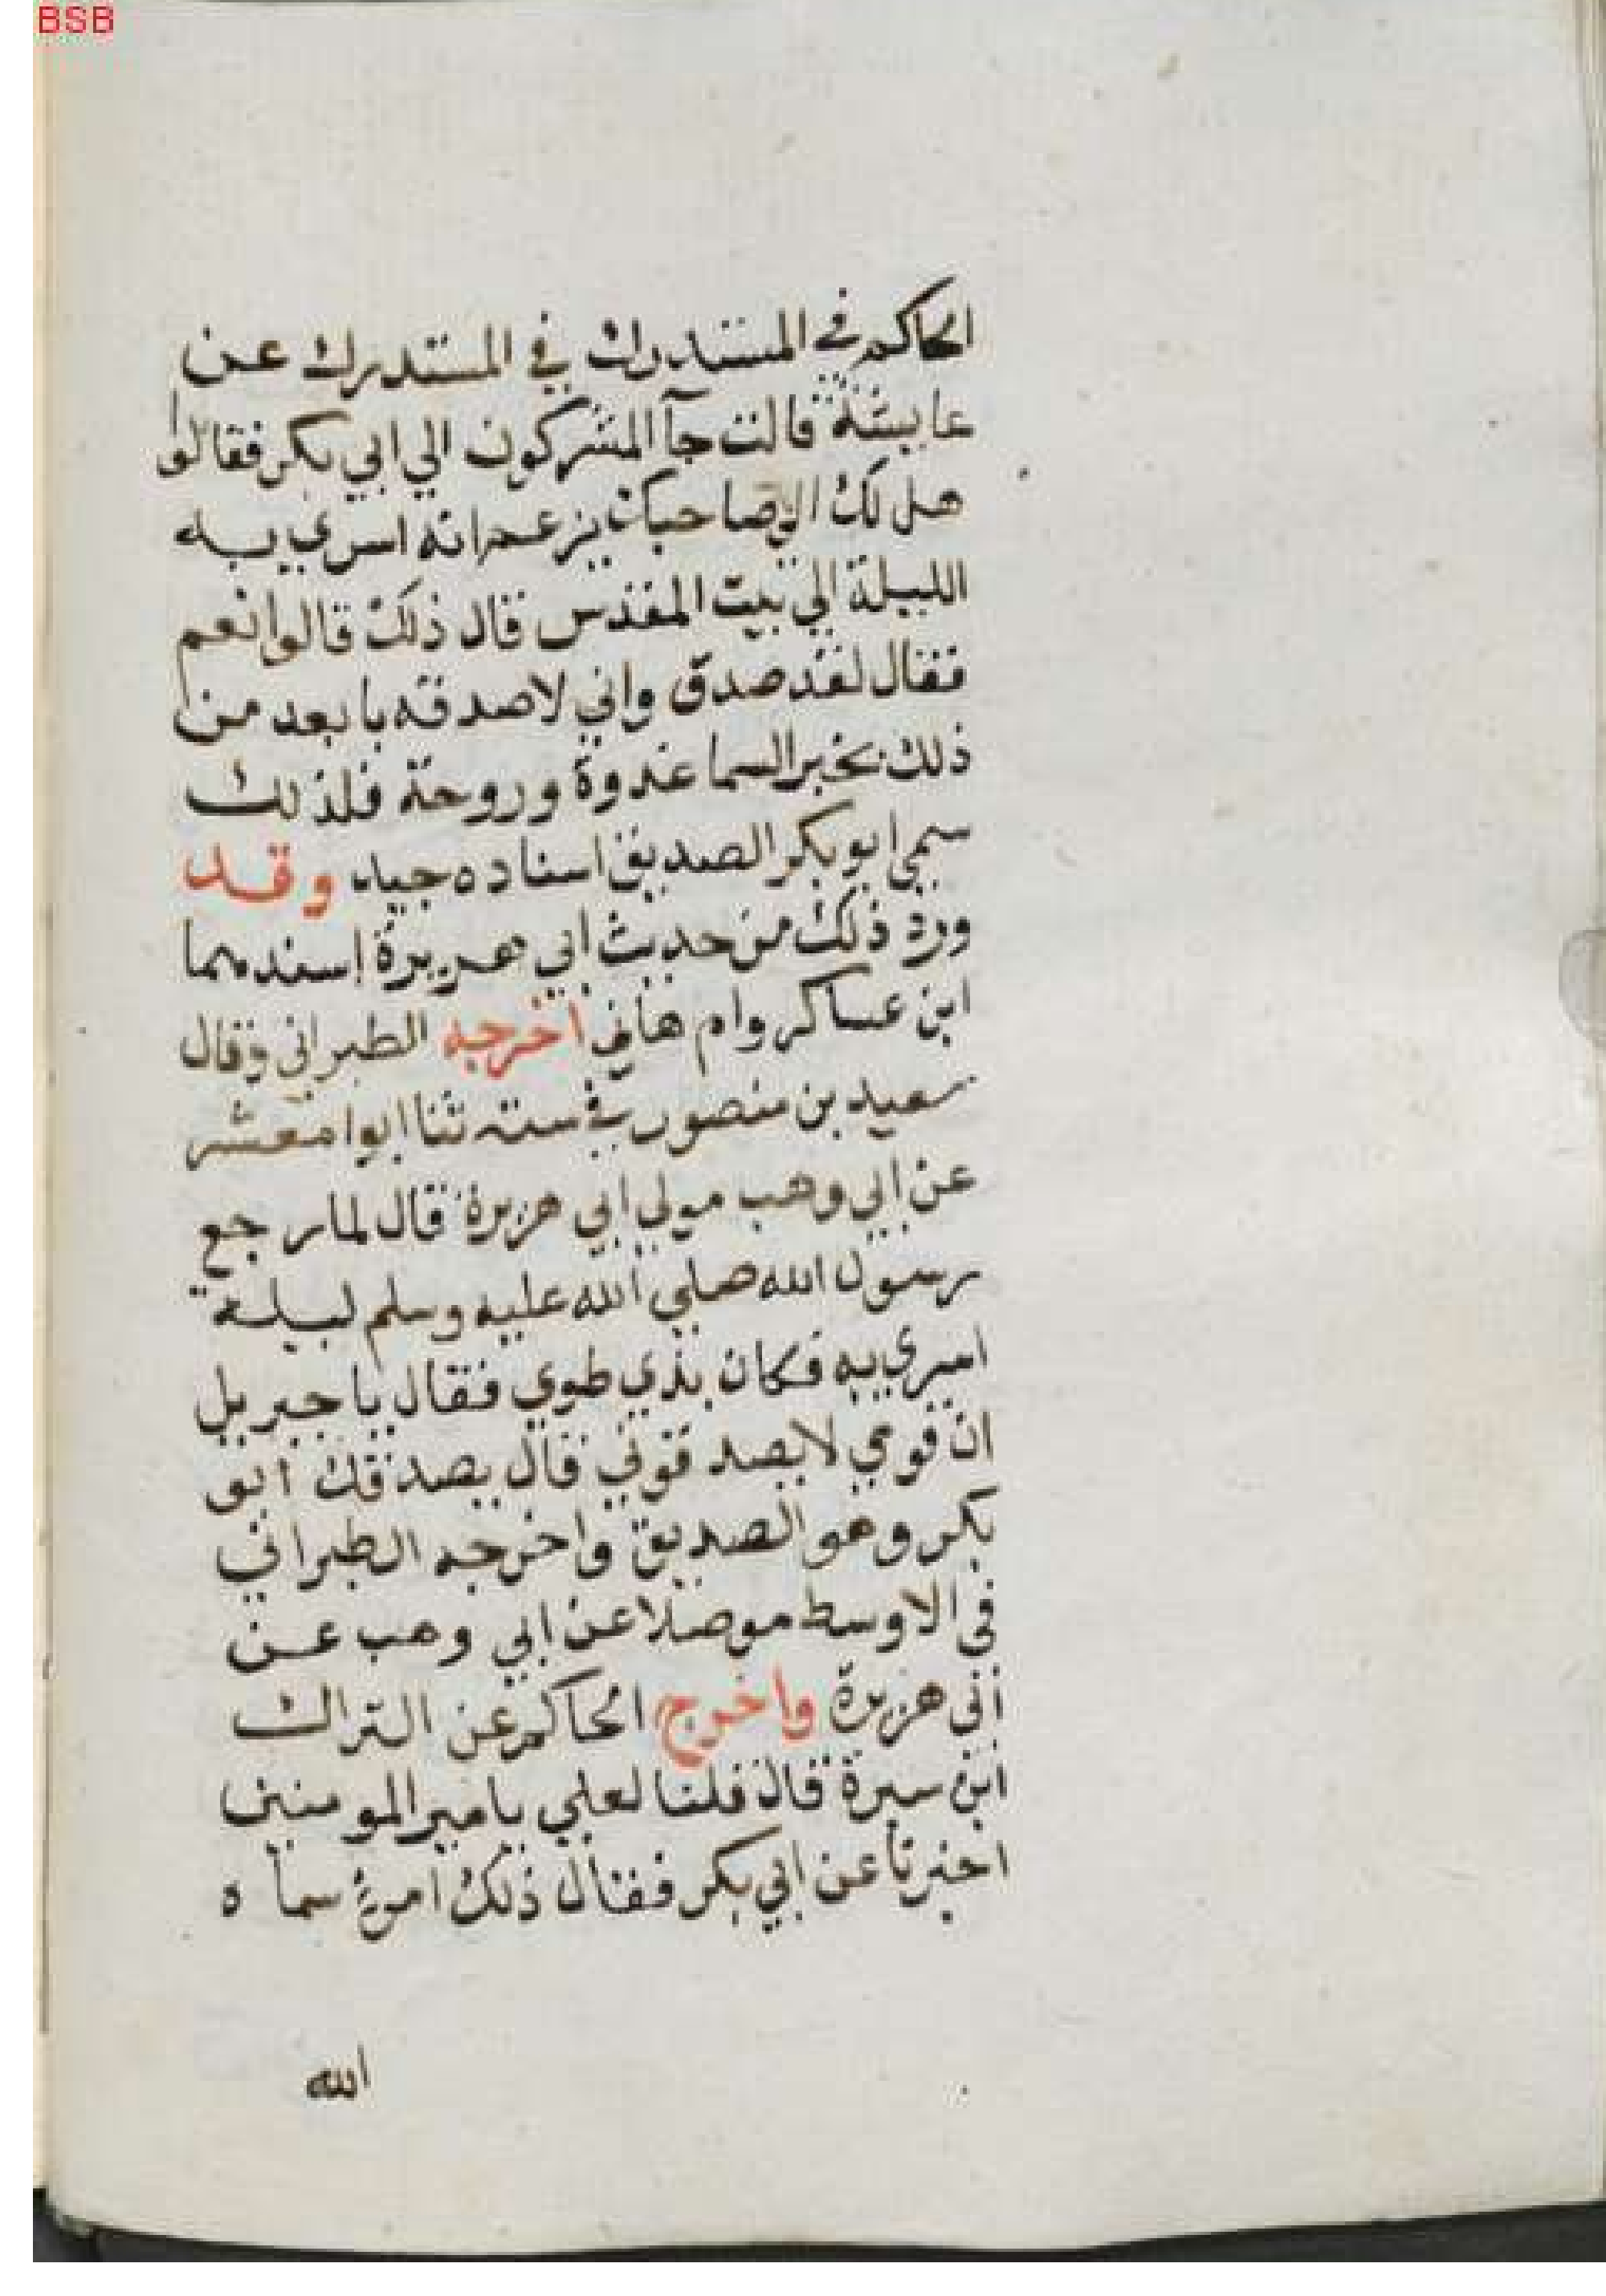 BSB
الحاكم في المستدرك في المستدرك عن
عايشة قالت جآ المشركون الي ابي بكر فقالوا
هل لك الي صاحبك يزعم انه اسري به
الليلة الي بيت المقدس قال ذلك قالوا نعم
فقال لقد صدق واني لاصدقه بابعد من
ذلك بخبر السما غدوة وروحة فلذلك
سمي ابو بكر الصديق اسناده جيد وقد
ورد ذلك من حديث ابي هريرة اسندهما
ابن عساكر وام هاني اخرجه الطبراني وقال
سعيد بن منصور في سننه ثنا ابوا معشر
عن ابي وهب مولي ابي هريرة قال لما رجع
رسول الله صلي الله عليه وسلم ليلة
اسري به فكان بذي طوي فقال يا جبريل
ان قومي لا يصدقوني قال يصدقك ابو
بكر وهو الصديق واخرجه الطبراني
في الاوسط موصلا عن ابي وهب عن
ابي هريرة واخرج الحاكم عن النزال
ابن سبرة قال قلنا لعلي يامير المومنين
اخبرنا عن ابي بكر فقال ذلك امرئ سماه
الله